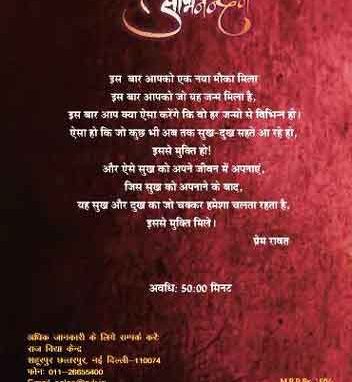 अभिनन्दन
इस बार आपको एक नया मौका मिला
इस बार आपको जो यह जन्म मिला है,
इस बार आप क्या ऐसा करेंगे कि वो हर जन्मो से विभिन्न हो।
ऐसा हो कि जो कुछ भी अब तक सुख-दुख सहते आ रहे हो,
इससे मुक्ति हो!
और ऐसे सुख को अपने जीवन में अपनाएं,
जिस सुख को अपनाने के बाद,
यह सुख और दुख का जो चक्कर हमेशा चलता रहता है,
इससे मुक्ति मिले।
प्रेम रावत
अवधि: 50:00 मिनट
अधिक जानकारी के लिये सम्पर्क करें:
राज विद्या केन्द्र
शहूरपुर छत्तरपुर, नई दिल्ली-110074
फोन: 011-26655400